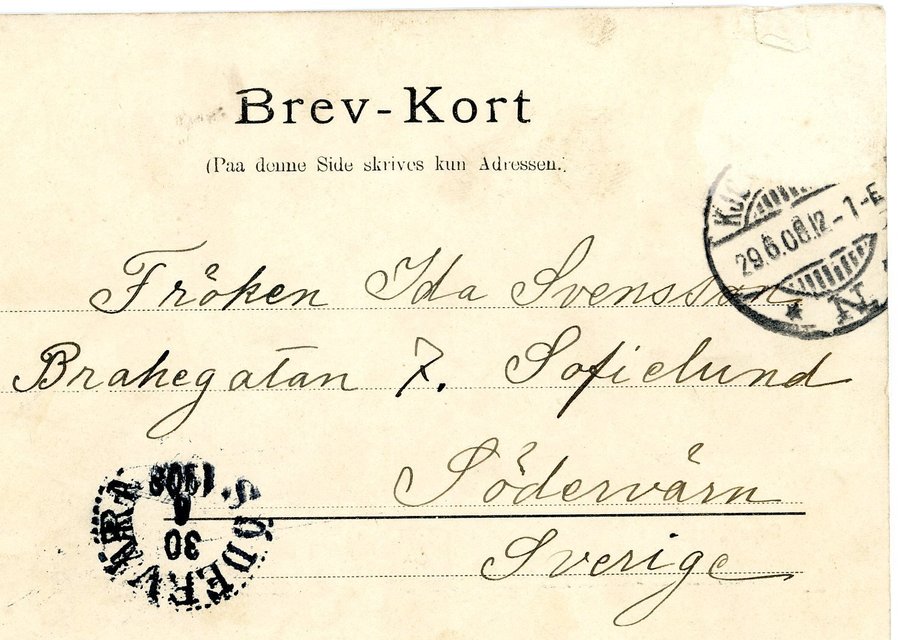 Brev-Kort
(Paa denne Side skrives kun Adressen.)
KJØ
29.6.08.12-1-E
N
Fröken Ida Svensson
Brahegatan 7. Sofielund
Södervärn
Sverige
SÖDERVÄRN
30
6
1908